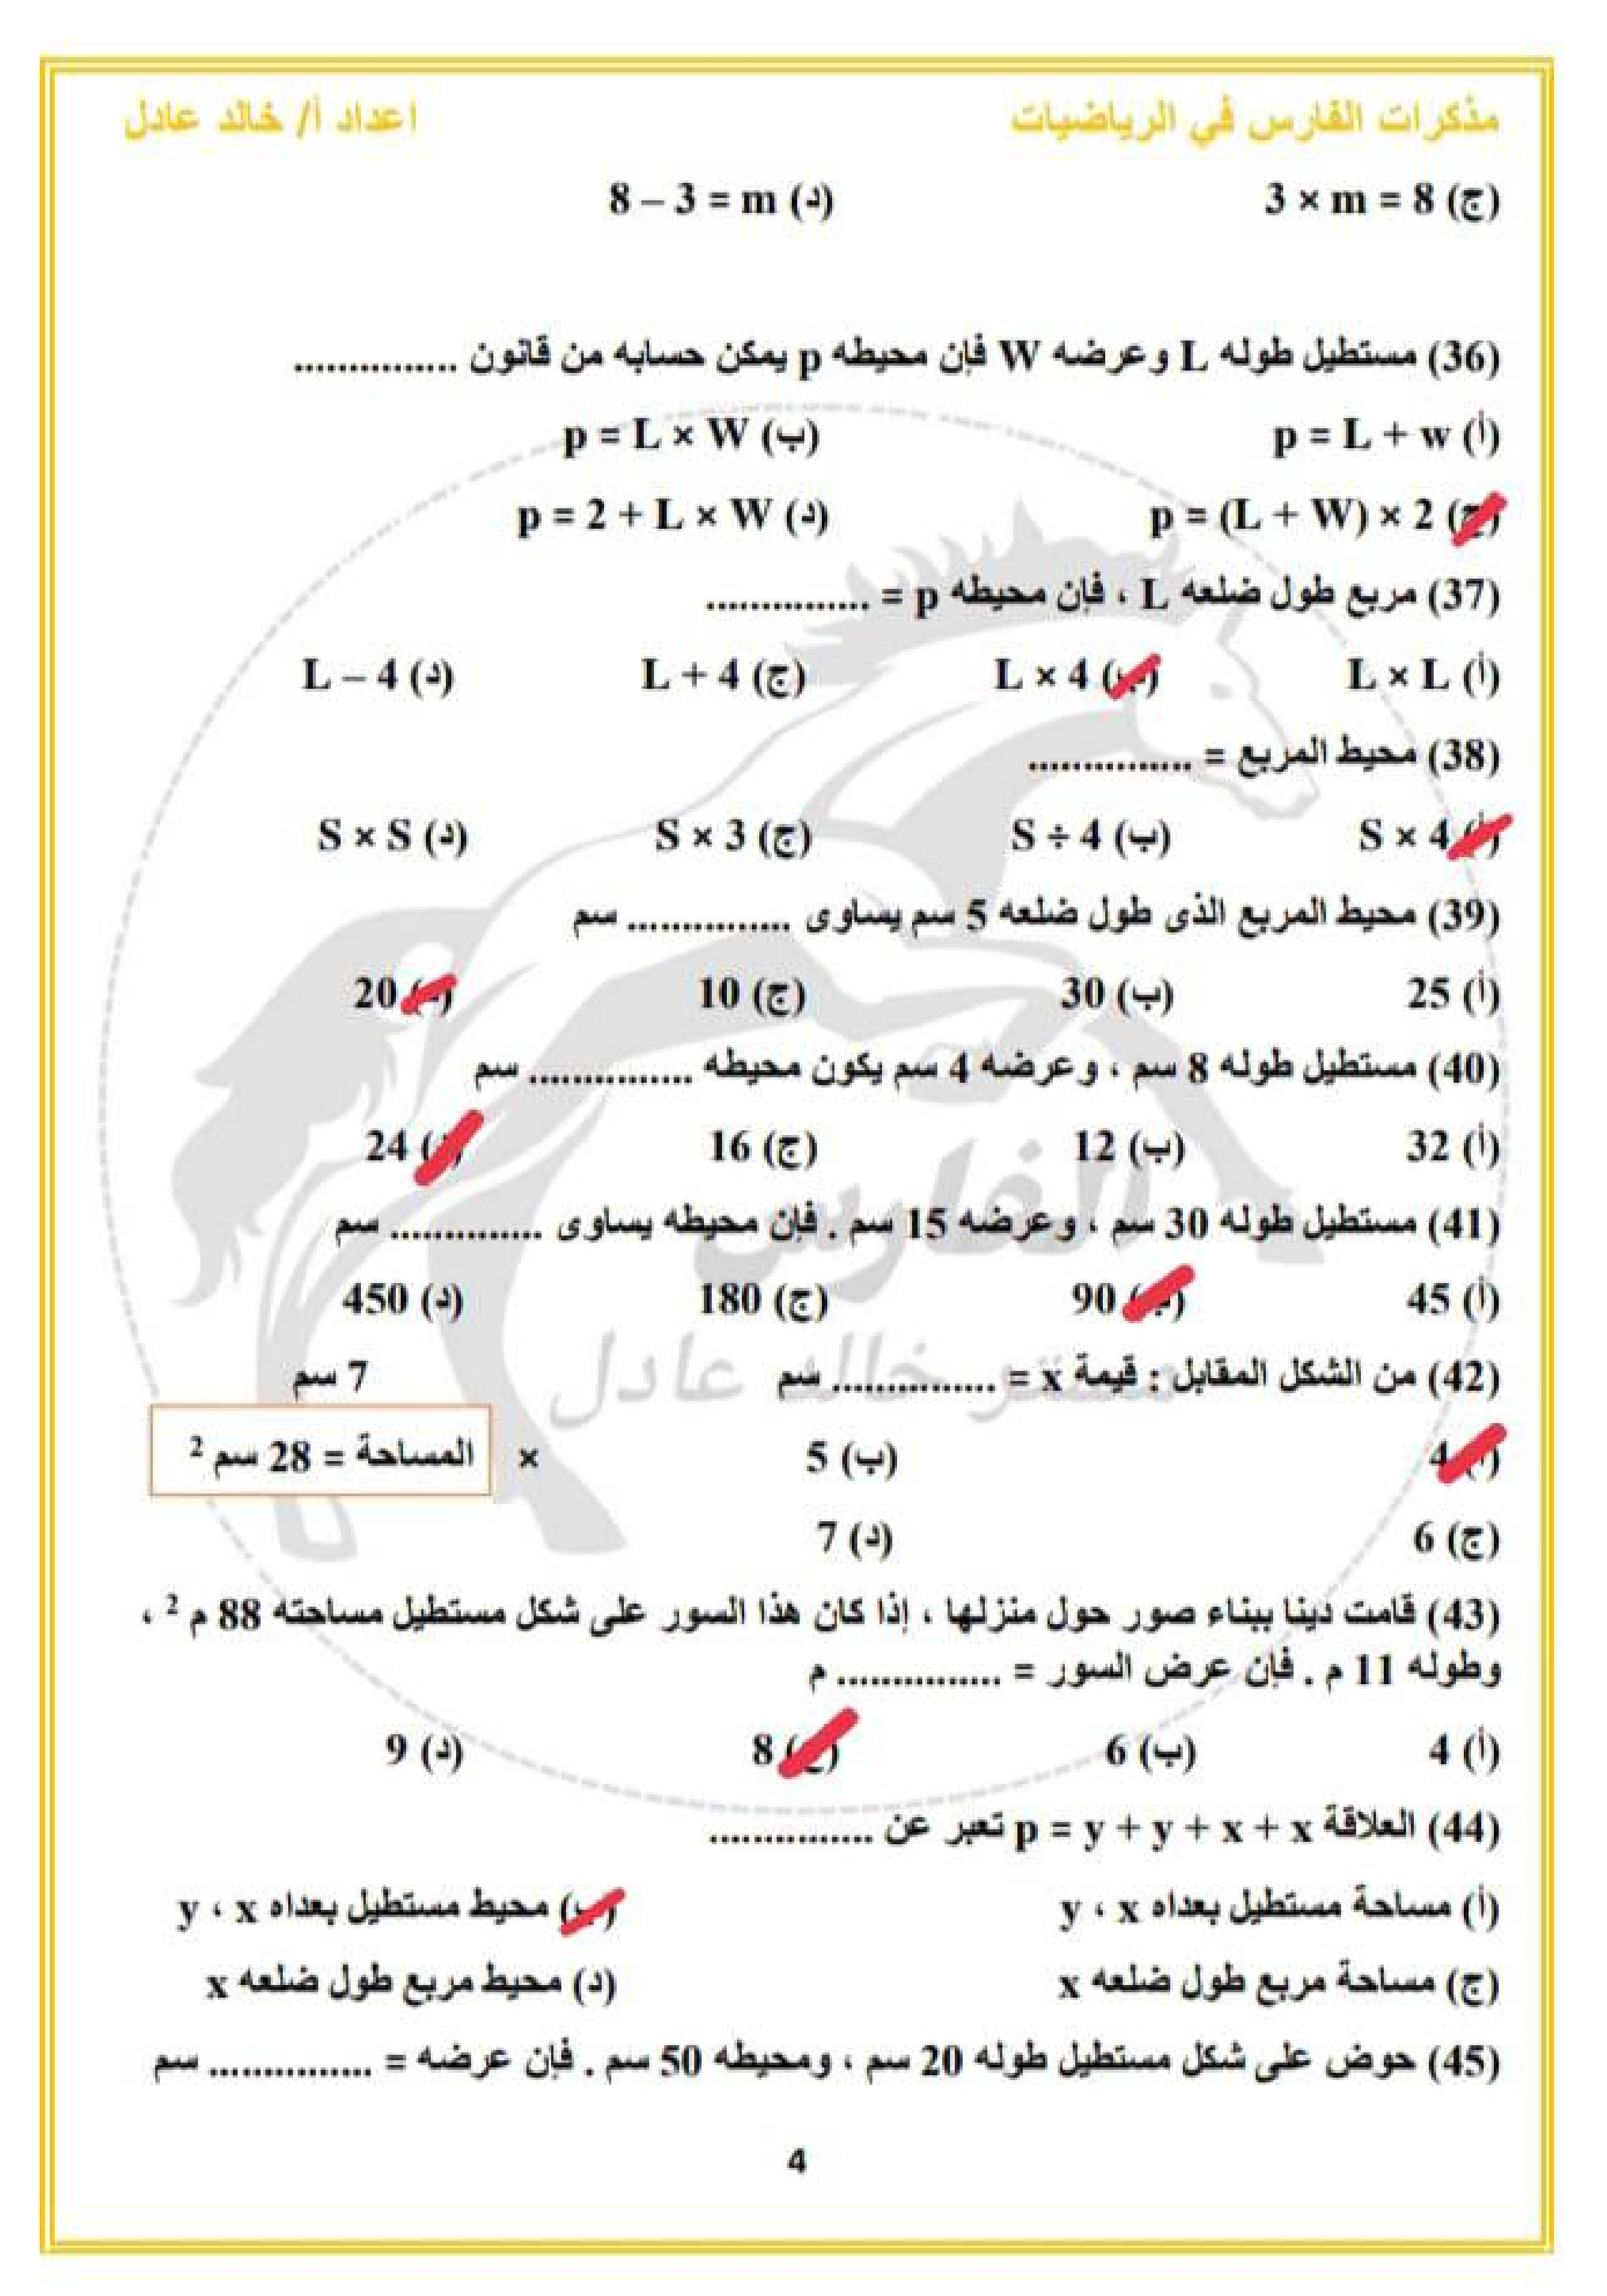 مذكرات الفارس في الرياضيات اعداد أ/ خالد عادل
(ج) 3 × m = 8 (د) 8 – 3 = m
(36) مستطيل طوله L وعرضه W فإن محيطه p يمكن حسابه من قانون ...............
(أ) p = L + w (ب) p = L × W
(ج) p = (L + W) × 2 (د) p = 2 + L × W
(37) مربع طول ضلعه L ، فإن محيطه p = ...............
(أ) L × L (ب) L × 4 (ج) L + 4 (د) L – 4
(38) محيط المربع = ...............
(أ) S × 4 (ب) S ÷ 4 (ج) S × 3 (د) S × S
(39) محيط المربع الذى طول ضلعه 5 سم يساوى ............... سم
(أ) 25 (ب) 30 (ج) 10 (د) 20
(40) مستطيل طوله 8 سم ، وعرضه 4 سم يكون محيطه ............... سم
(أ) 32 (ب) 12 (ج) 16 (د) 24
(41) مستطيل طوله 30 سم ، وعرضه 15 سم . فإن محيطه يساوى .............. سم
(أ) 45 (ب) 90 (ج) 180 (د) 450
(42) من الشكل المقابل : قيمة x = ............... سم 7 سم
(أ) 4 (ب) 5 × المساحة = 28 سم 2
(ج) 6 (د) 7
(43) قامت دينا ببناء صور حول منزلها ، إذا كان هذا السور على شكل مستطيل مساحته 88 م 2 ،
وطوله 11 م . فإن عرض السور = ............... م
(أ) 4 (ب) 6 (ج) 8 (د) 9
(44) العلاقة p = y + y + x + x تعبر عن ...............
(أ) مساحة مستطيل بعداه y ، x (ب) محيط مستطيل بعداه y ، x
(ج) مساحة مربع طول ضلعه x (د) محيط مربع طول ضلعه x
(45) حوض على شكل مستطيل طوله 20 سم ، ومحيطه 50 سم . فإن عرضه = ............... سم
4
الفارس
مستر خالد عادل